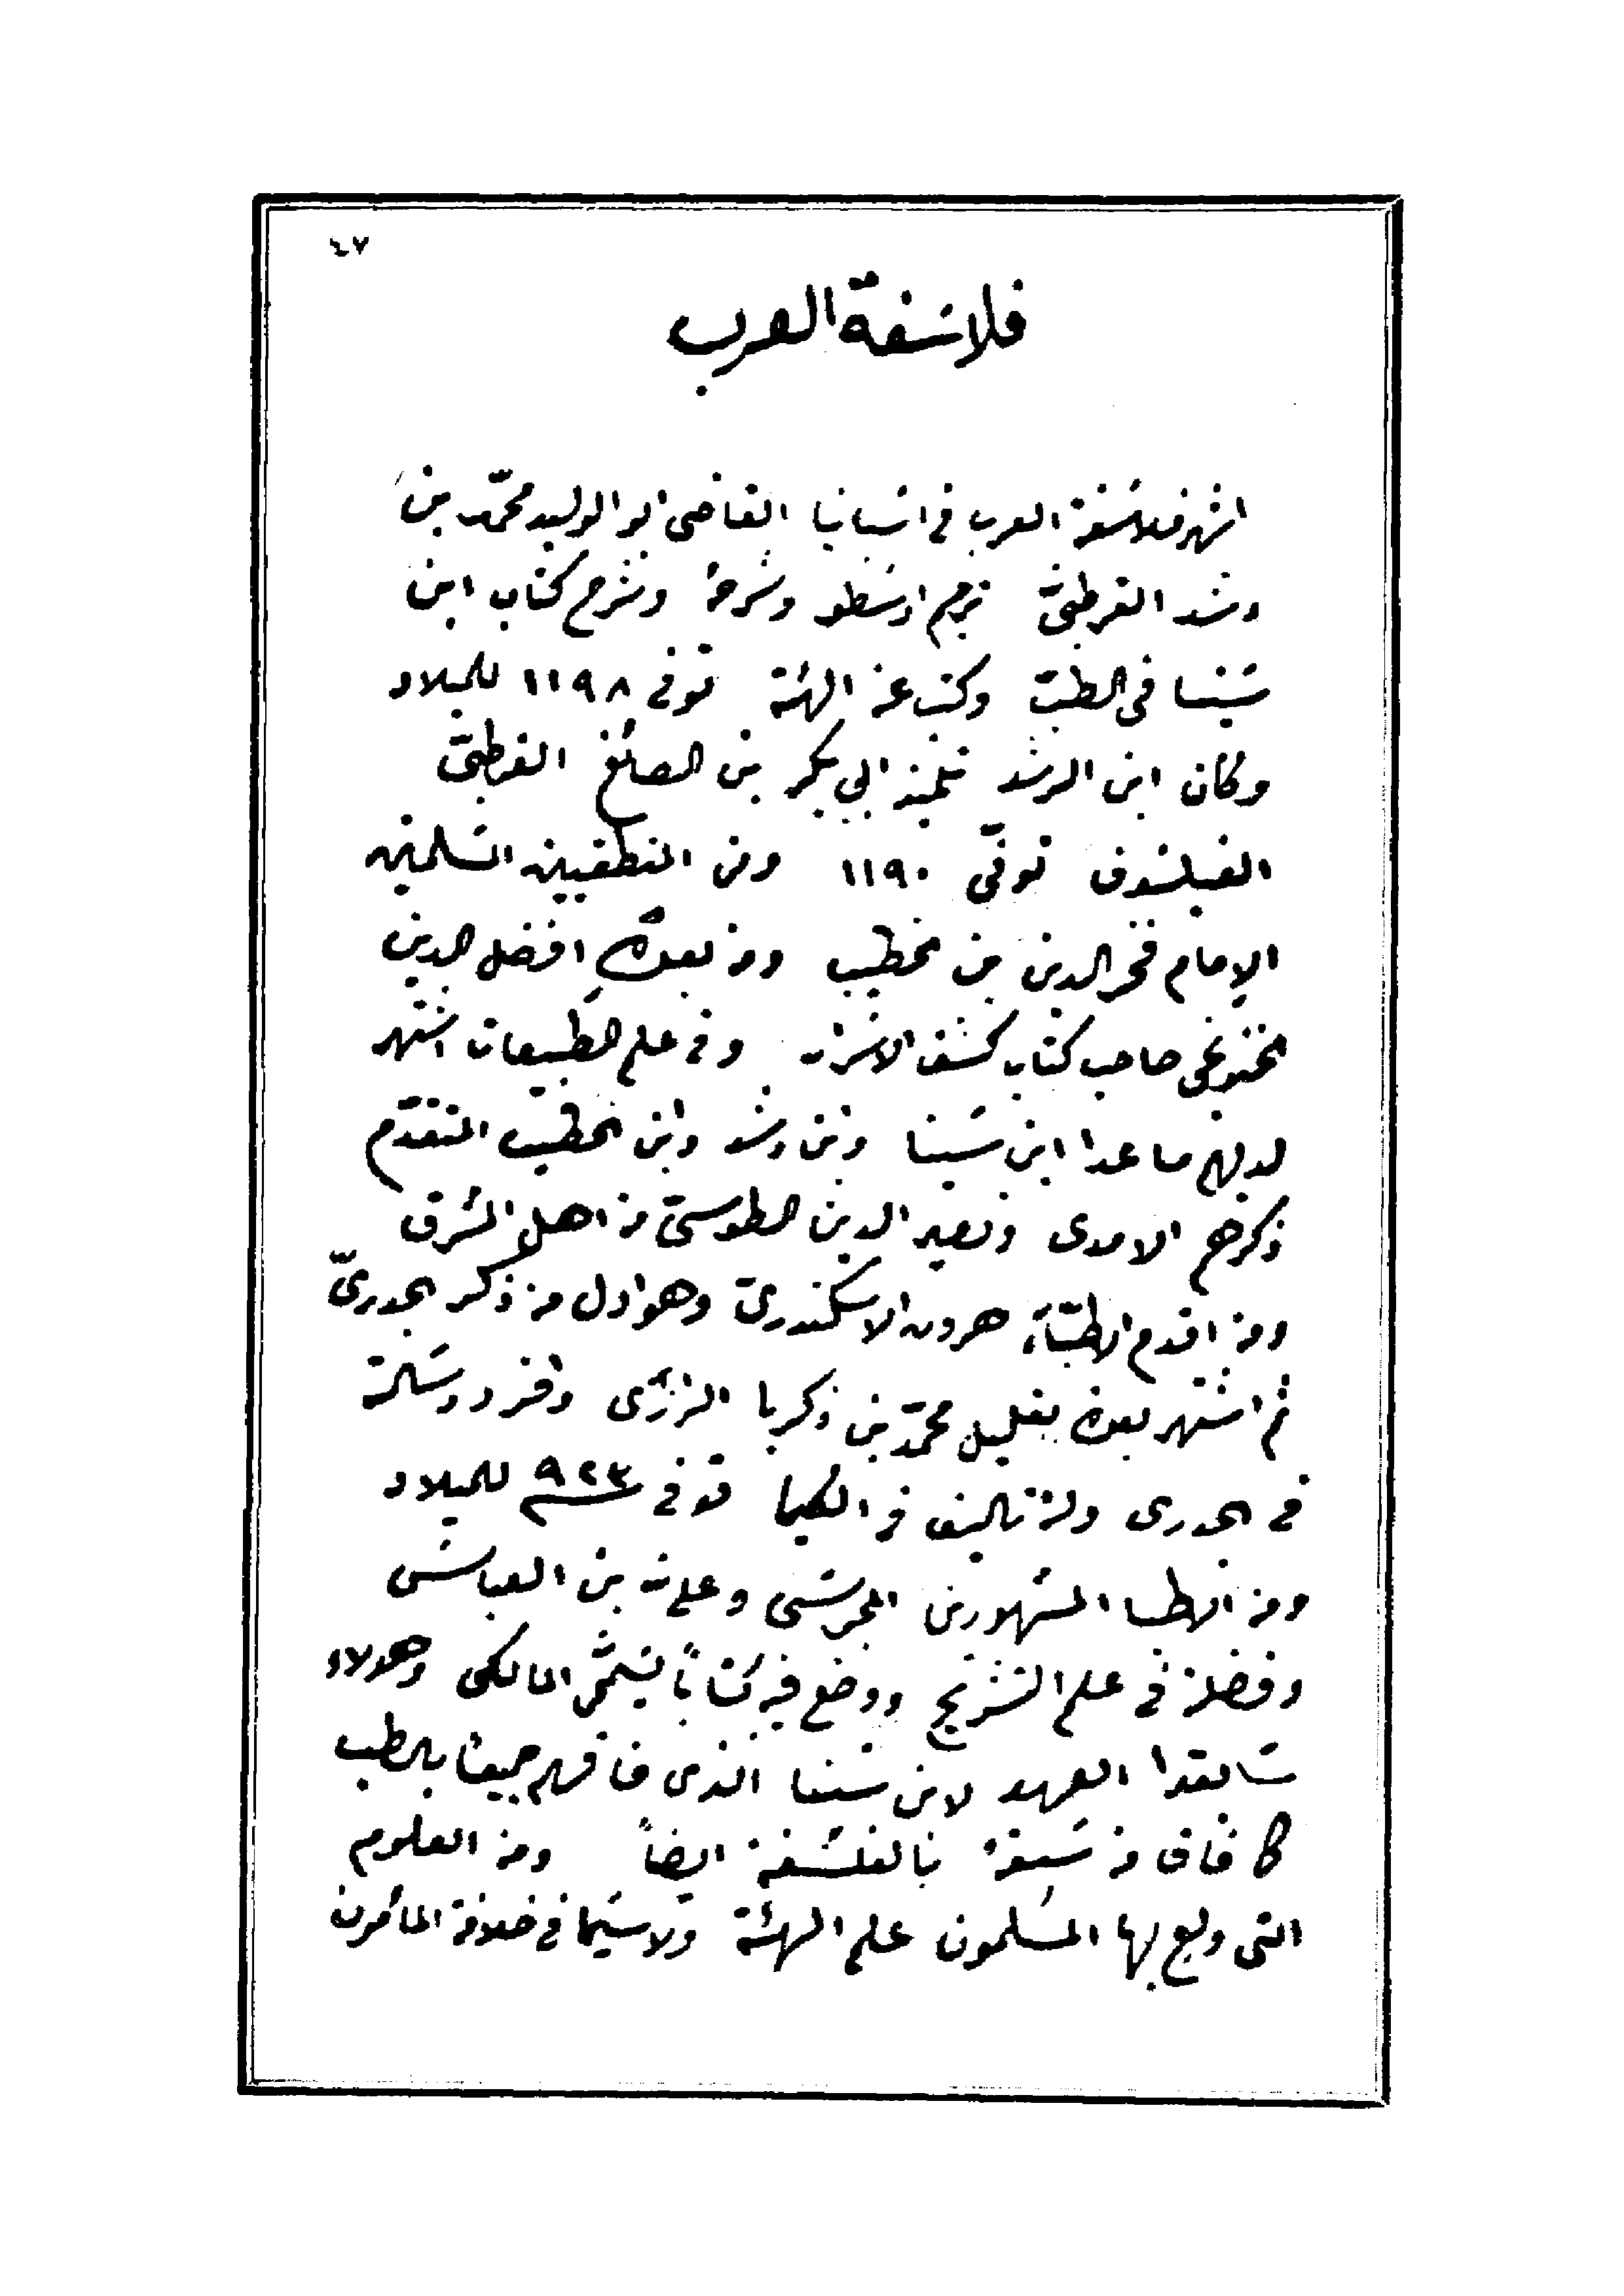 ٤٧
فلاسفة العرب
اشهر فلاسفة العرب فى اسبانيا القاضى ابو الوليد محمّد بن
رشد القرطبىّ ترجم ارسطو وشرحهُ وشرح كتاب ابن
سينا فى الطبّ وكتب عن الهئة توفى ١١٩٨ للميلاد
وكان ابن الرشد تلميذ ابى بكر بن الصائغ القرطبىّ
الفيلسوف توفّى ١١٩٠ ومن المنطقيين المسلمين
الإمام فخر الدين بن الخطيب ومن بعدهُ افضل الدين
الخنوغى صاحب كتاب كشف الاسرار وفى علم الطبيعات اشتهر
لديهم ما عدا ابن سينا وابن رشد وابن الخطيب المتقدّم
ذكرهم الامدى ونصير الدين الطوسىّ من اهل المشرق
ومن اقدم الاطبّاء هرون الاسكندرىّ وهو اول من ذكر الجدرىّ
ثم اشتهر بعده بقليل محمّد بن زكريا الرازى وافرد رسالة
فى الجدرى ولهُ تاليف فى الكيما توفى ٩٢٣ للميلاد
ومن الاطبا المشهورين المجرسى وعلى بن العباس
وفضلهُ فى علم التشريح ووضع فيه كتاباً يسمّى المالكى وهولاء
سابقوا العهد لابن سينا الذى فاقهم جميعا بالطب
كما فاق من سبقهُ بالفلسفة ايضاً ومن العلوم
التى ولع بها المسلمون علم الهئة ولا سيما فى خلافة المأمون